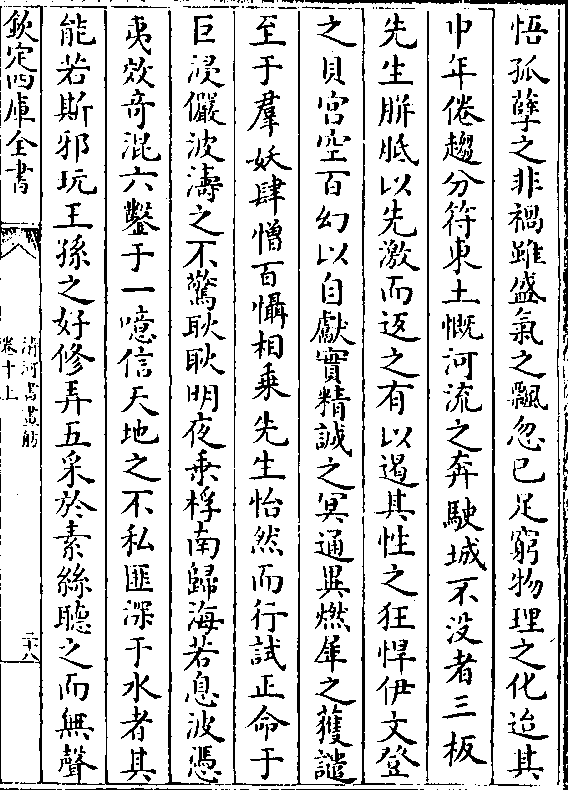 悟孤孽之非禍雖盛氣之飄忽已足窮物理之化迨其
中年倦趨分符東土慨河流之奔駛城不没者三板
先生胼胝以先激而返之有以遏其性之狂悍伊文登
之貝宫空百幻以自獻實精誠之冥通異燃犀之獲譴
至于羣妖肆憎百懾相乘先生怡然而行試正命于
巨浸儼波濤之不驚耿耿明夜乘桴南歸海若息波馮
夷效奇混六鑿于一噫信天地之不私匪深于水者其
能若斯邪玩王孫之好修弄五采於素絲聽之而無聲
欽定四庫全書
清河書畫舫
卷十上
二十八